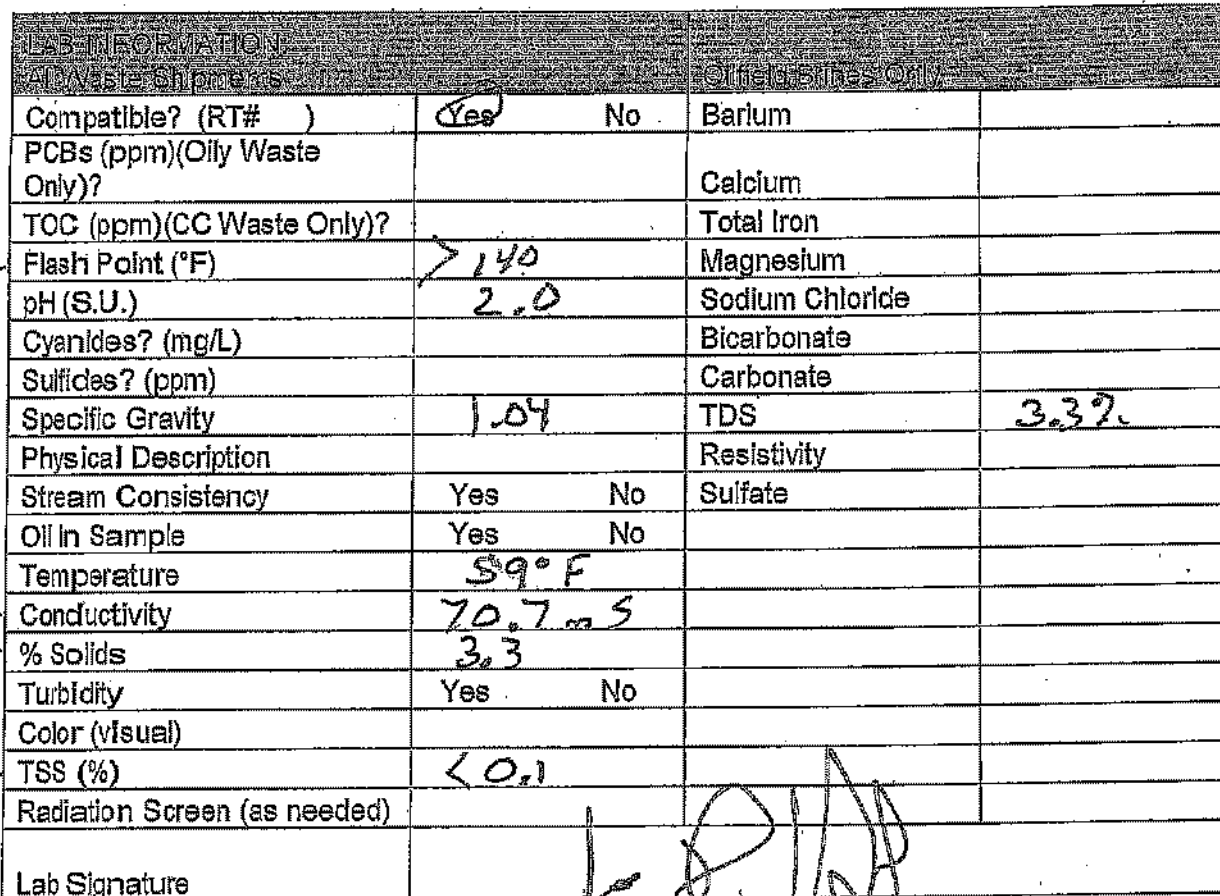 LAB INFORMATION:
All Waste Shipments Oilfield Brines Only
Compatible? (RT# ) Yes No Barium
PCBs (ppm)(Oily Waste
Only)? Calcium
TOC (ppm)(CC Waste Only)? Total Iron
Flash Point (°F) >140 Magnesium
pH (S.U.) 2.0 Sodium Chloride
Cyanides? (mg/L) Bicarbonate
Sulfides? (ppm) Carbonate
Specific Gravity 1.04 TDS 3.3%
Physical Description Resistivity
Stream Consistency Yes No Sulfate
Oil in Sample Yes No
Temperature 59°F
Conductivity 70.7 mS
% Solids 3.3
Turbidity Yes No
Color (visual)
TSS (%) <0.1
Radiation Screen (as needed)
Lab Signature